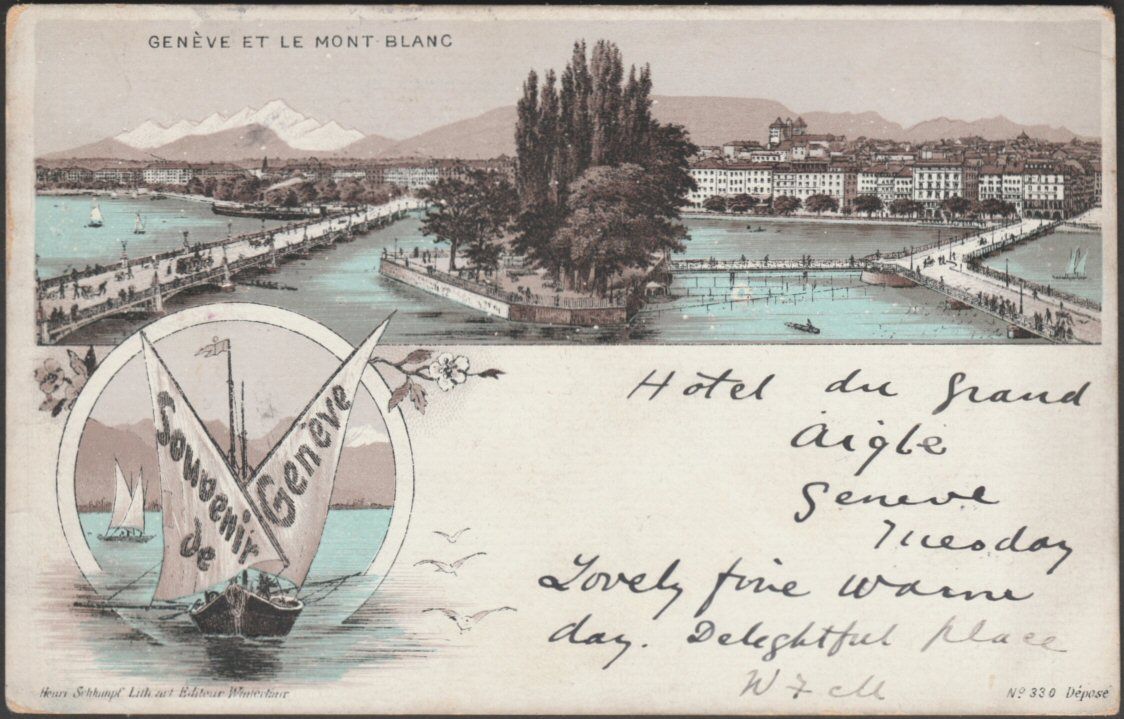 GENÈVE ET LE MONT-BLANC
Souvenir
de
Genève
Hotel du Grand
Aigle
Geneve
Tuesday
Lovely fine warm
day. Delightful place
W F M
Henri Schlumpf Lith. art Editeur Winterthur
Nº 330 Déposé